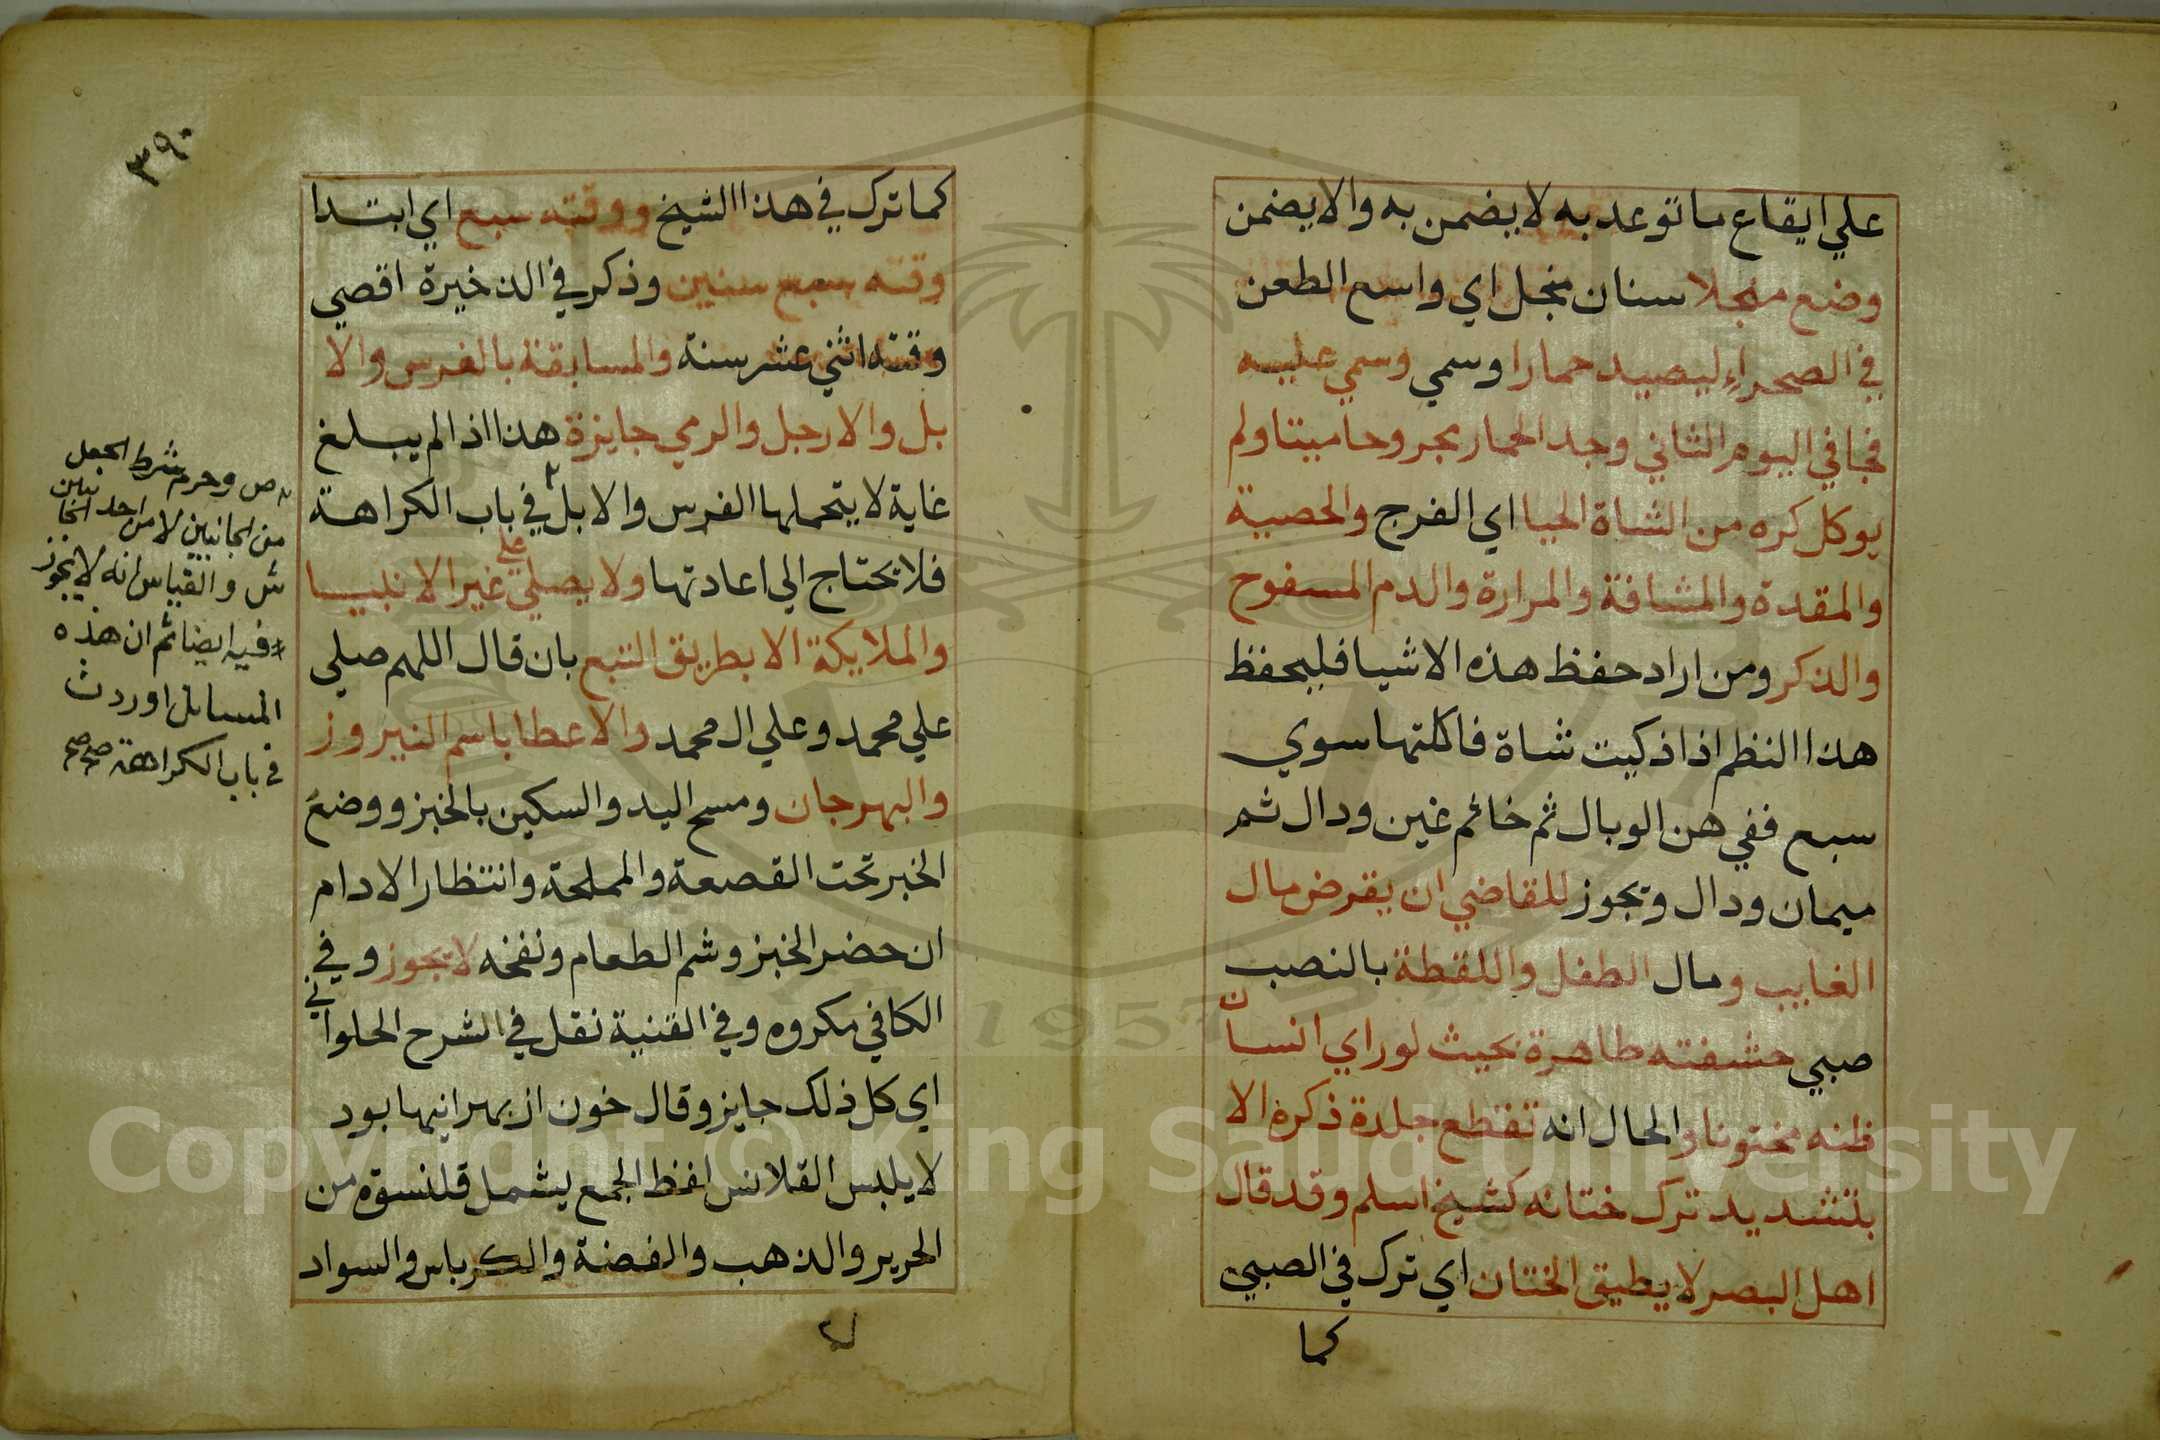 علي ايقاع ما توعد به لا يضمن به والا يضمن
وضع منجلا سنان منجل اي واسع الطعن
في الصحراء ليصيد حمارا وسمي وسمي عليه
فجا في اليوم الثاني وجد الحمار مجروحا ميتا ولم
يوكل كره من الشاة الحيا اي الفرج والخصية
والمقدة والمثانة والمرارة والدم المسفوح
والذكر ومن اراد حفظ هذه الاشيا فليحفظ
هذا النظم اذا ذكيت شاة فاكلتها سوي
سبع ففي هن الوبال ثم خائم غين ودال ثم
ميمان ودال ويجوز للقاضي ان يقرض مال
الغايب ومال الطفل واللقطة بالنصب
صبي حشفته ظاهرة بحيث لو راي انسان
ظنه مختونا والحال انه تقطع جلدة ذكره الا
بتشديد ترك ختانه كشيخ اسلم وقد قال
اهل البصر لا يطيق الختان اي ترك في الصبي
كما
٣٩٠
كما ترك في هذا الشيخ ووقته سبع اي ابتدا
وقته سبع سنين وذكر في الذخيرة اقصي
وقته اثني عشر سنة والمسابقة بالفرس والا
بل والارجل والرمي جايزة هذا اذا لم يبلغ
غاية لا يتحملها الفرس والابل في باب الكراهة
فلا تحتاج الي اعادتها ولا يصلي علي غير الانبيا
والملايكة الا بطريق التبع بان قال اللهم صلي
علي محمد وعلي ال محمد والاعطا باسم النيروز
والبهرجان ومسح اليد والسكين بالخبز ووضع
الخبر تحت القصعة والمملحة وانتظار الادام
ان حضر الخبز وشم الطعام ونفخه لا يجوز وفي
الكافي مكروه وفي القنية نقل في الشرح الحلواني
اي كل ذلك جايز وقال خون از بهر اينها بود
لا يلبس القلانس لفظ الجمع يشمل قلنسوة من
الحرير والذهب والفضة والكرباس والسواد
ص وحرم شرط الجعل
من الجانبين لا من احد الجانبين
ش والقياس انه لا يجوز
فيه ايضا ثم ان هذه
المسائل اوردت
في باب الكراهة صح صح